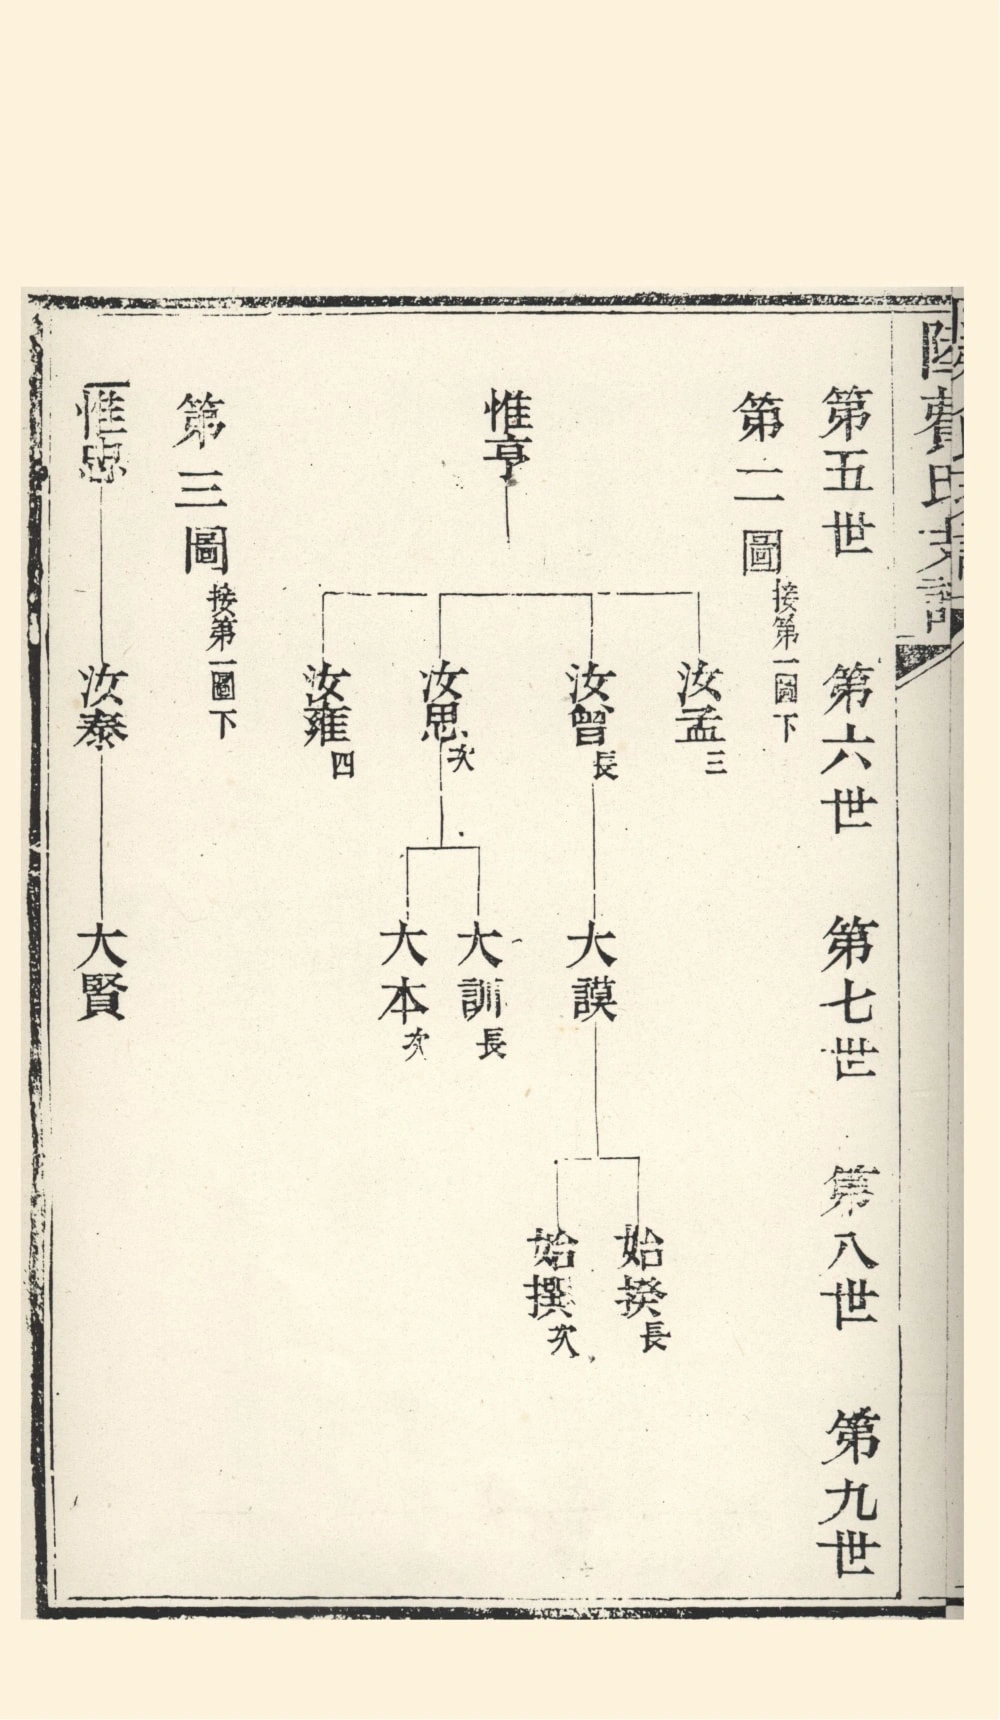 第五世 第六世 第七世 第八世 第九世
第二圖 接第一圖下
惟亨
汝孟 三
汝曾 長
汝思 次
汝雍 四
大謨
大訓 長
大本 次
始揆 長
始撰 次
第三圖 接第一圖下
惟忠
汝泰
大賢